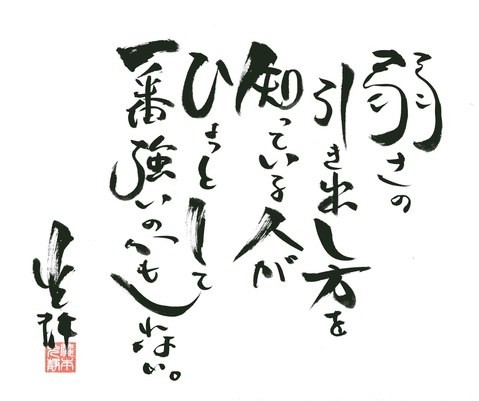 弱さの
引き出し方を
知っている人が
ひょっとして
一番強いのかもしれない。